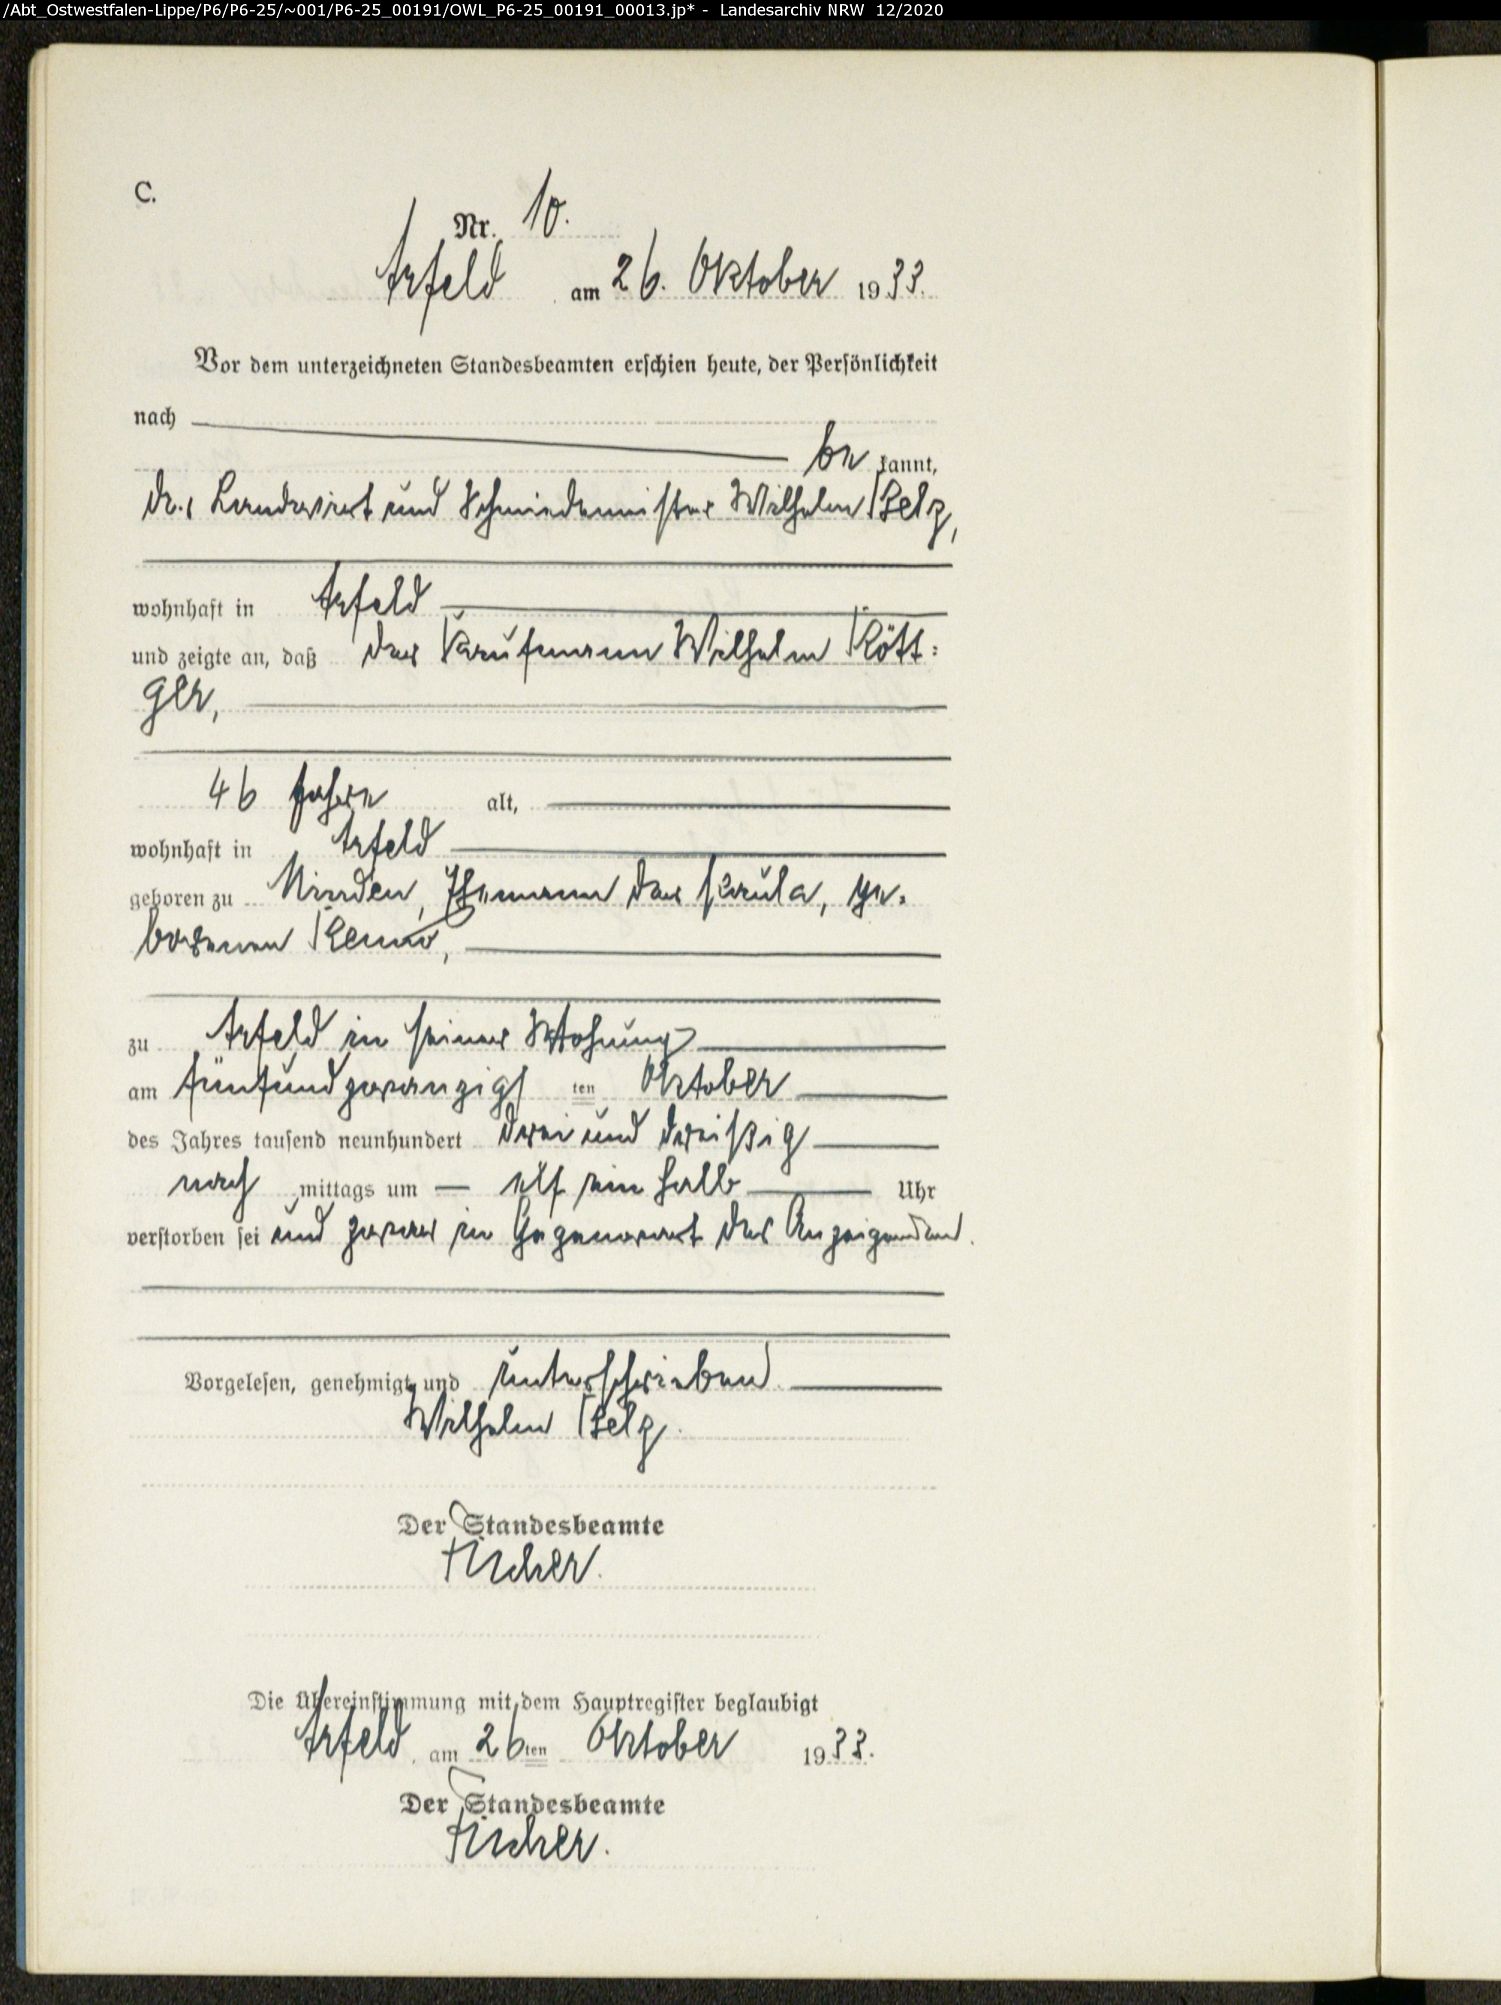 /Abt_Ostwestfalen-Lippe/P6/P6-25/~001/P6-25_00191/OWL_P6-25_00191_00013.jp* - Landesarchiv NRW 12/2020
C.
Nr. 10.
Arfeld am 26. Oktober 1933.
Vor dem unterzeichneten Standesbeamten erschien heute, der Persönlichkeit
nach
be kannt,
der Landwirt und Schmiedemeister Wilhelm
wohnhaft in Arfeld
und zeigte an, daß der Kaufmann Wilhelm Rött-
ger,
46 Jahre alt,
wohnhaft in Arfeld
geboren zu Minden, Ehemann der Paula, ge-
borenen
zu Arfeld in seiner Wohnung
am fünfundzwanzigs ten Oktober
des Jahres tausend neunhundert dreiunddreißig
nach mittags um elf ein halb Uhr
verstorben sei und zwar in Gegenwart des Anzeigenden.
Vorgelesen, genehmigt und unterschrieben
Wilhelm
Der Standesbeamte
Die Übereinstimmung mit dem Hauptregister beglaubigt
Arfeld, am 26ten Oktober 1933.
Der Standesbeamte